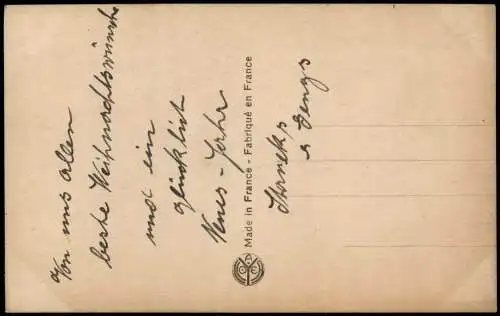 Von uns allen
beste Weihnachtswünsche
und ein
glücklich
Neues-Jahr
Made in France - Fabriqué en France